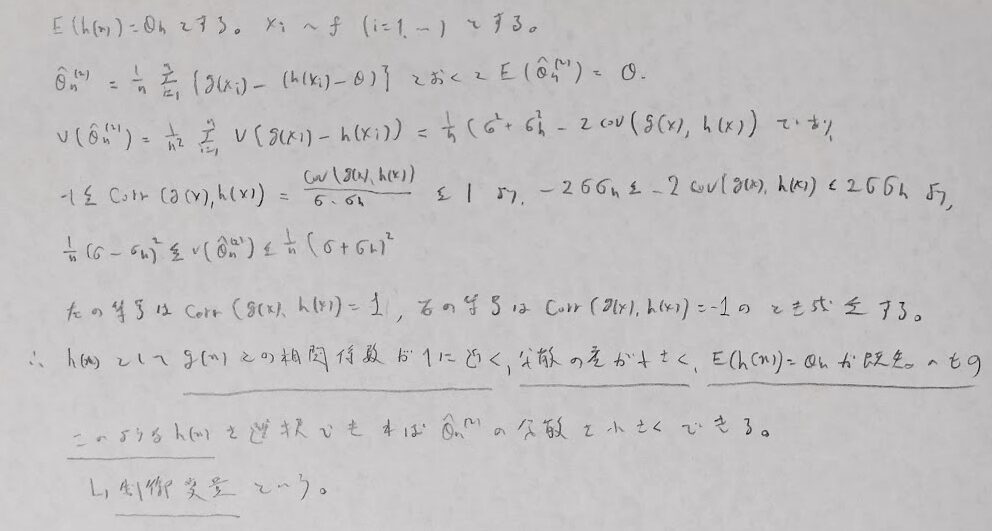 E(h(x))=θh とする。 xi ~ f (i=1, …) とする。
θ̂n⁽²⁾ = 1/n Σ[i=1,n] {g(xi) − (h(xi) − θ)} とおくと E(θ̂n⁽²⁾) = θ.
V(θ̂n⁽²⁾) = 1/n² Σ[i=1,n] V(g(xi) − h(xi)) = 1/n (σ² + σh² − 2 cov(g(x), h(x)) であり,
-1 ≦ Corr(g(x), h(x)) = cov(g(x), h(x)) / σ・σh ≦ 1 より, −2σσh ≦ −2 cov(g(x), h(x)) ≦ 2σσh より,
1/n (σ − σh)² ≦ V(θ̂n⁽²⁾) ≦ 1/n (σ + σh)²
左の等号は Corr(g(x), h(x)) = 1, 右の等号は Corr(g(x), h(x)) = -1 のとき成立する。
∴ h(x) として g(x) との相関係数が1に近く, 分散の差が小さく, E(h(x)) = θh が既知のもの
このような h(x) を選択できれば θ̂n⁽²⁾ の分散を小さくできる。
↳ 制御変量 という。